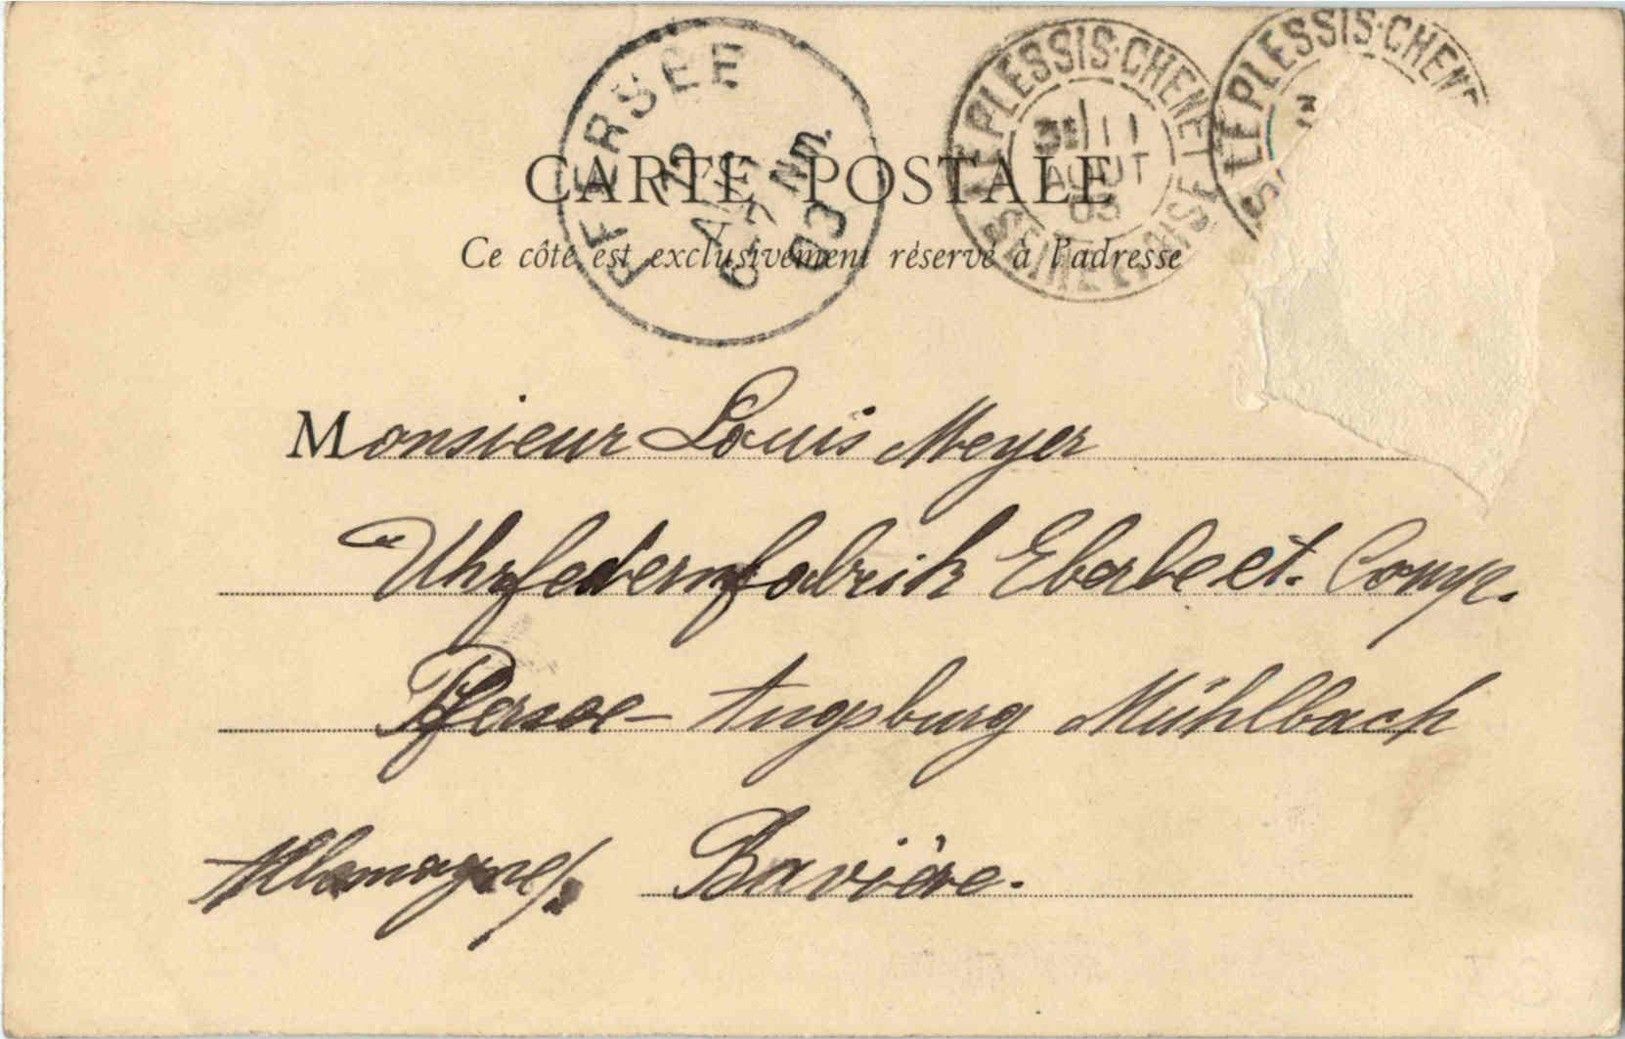 PFERSEE
12 AUG
6-7 Nm.
03
LE PLESSIS-CHENET
3E 11
AOUT
03
SEINE ET OISE
LE PLESSIS-CHENE
CARTE POSTALE
Ce côté est exclusivement réservé à l'adresse
Monsieur Louis Meyer
Uhrfedernfabrik Eberle et. Comp.
Pfersee - Augsburg Mühlbach
Allemagne/. Bavière.